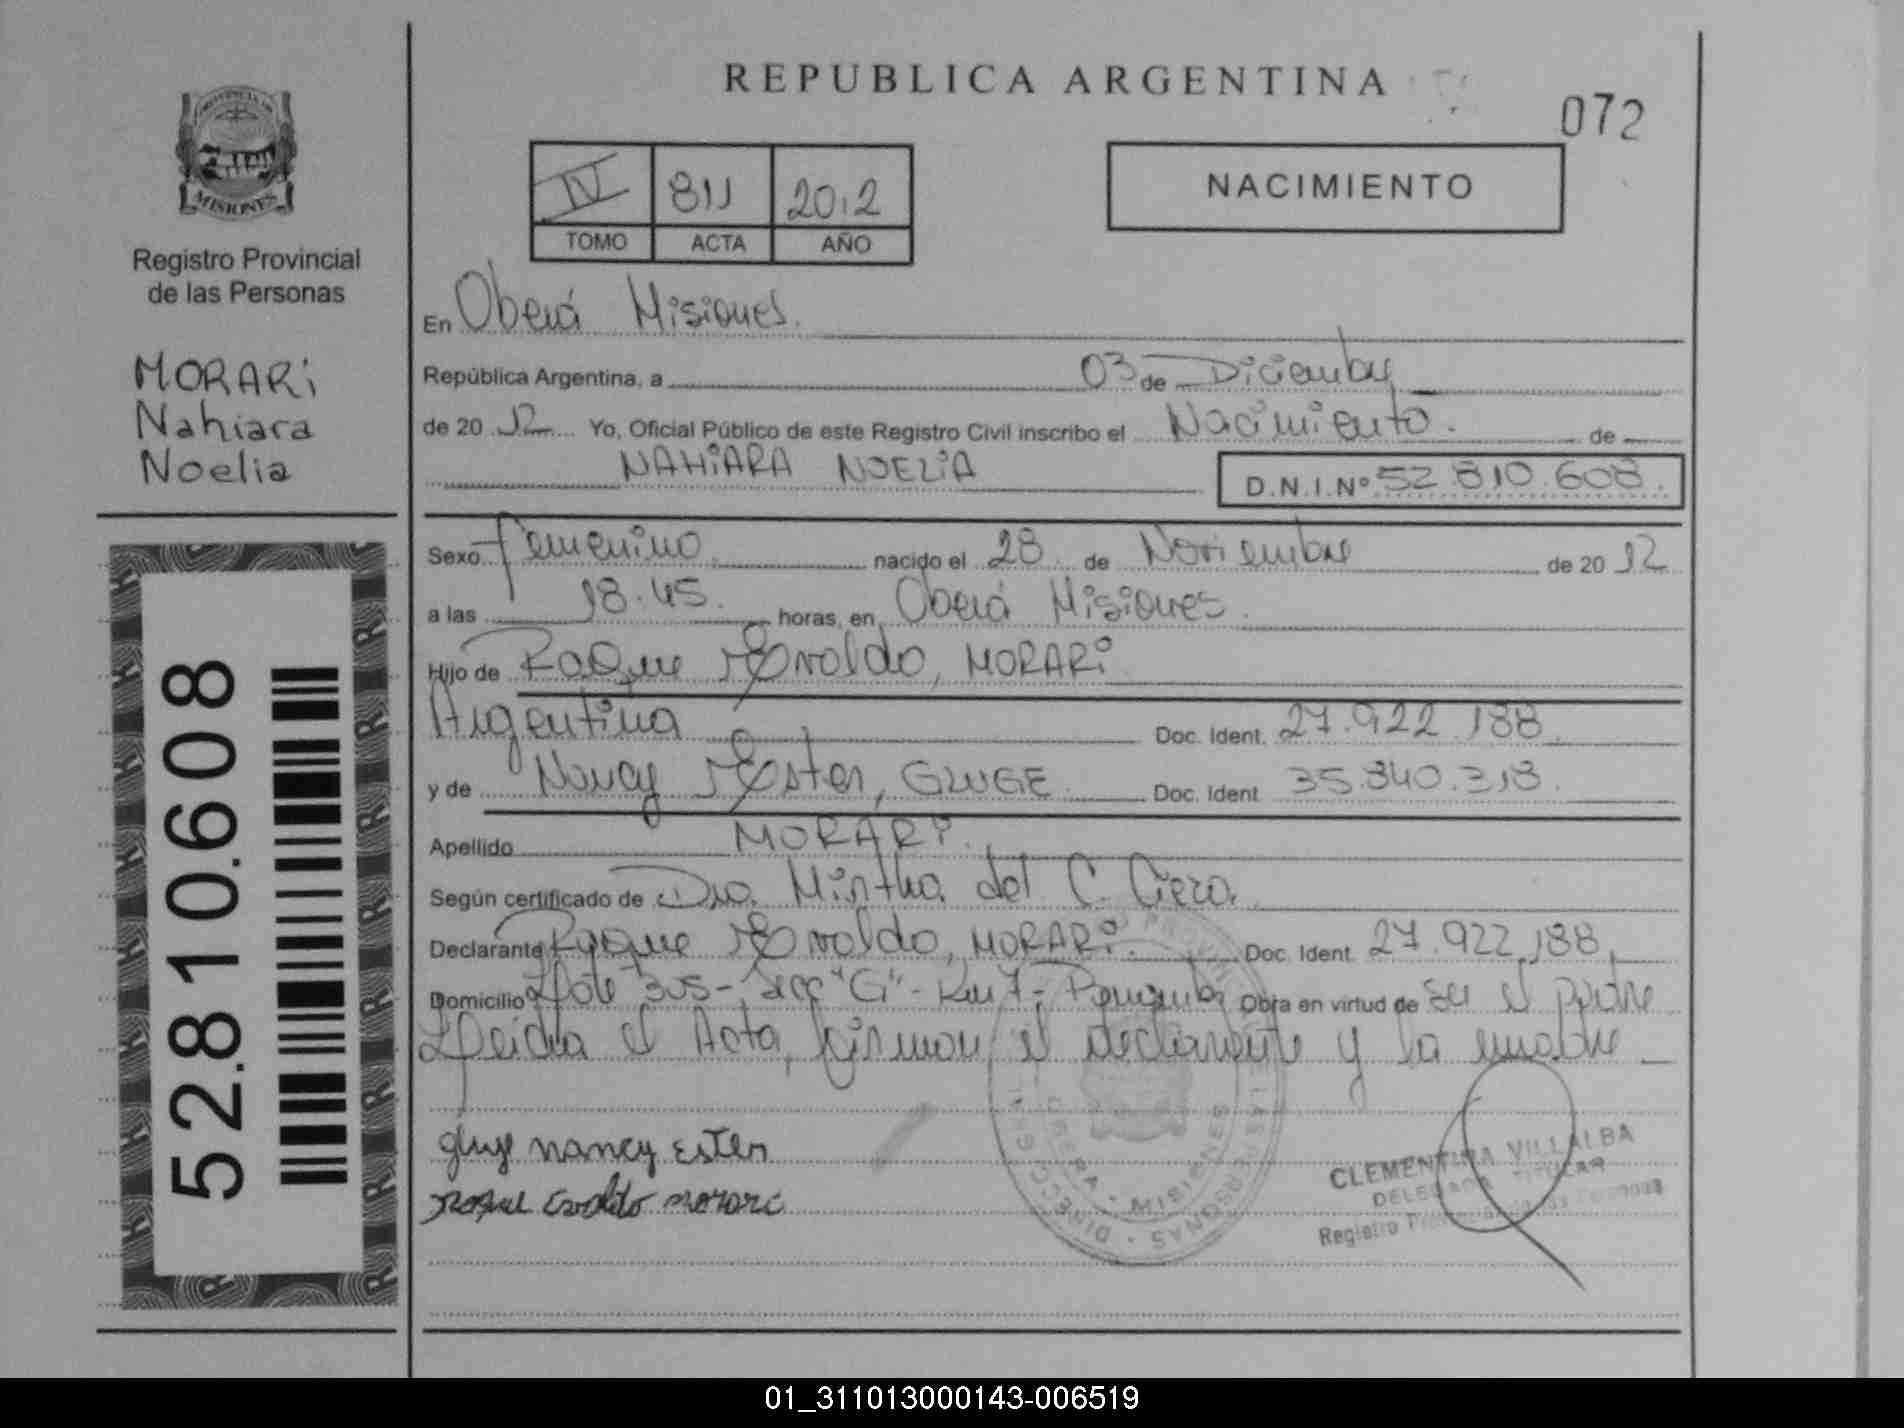 REPUBLICA ARGENTINA
072
PROVINCIA DE
MISIONES
Registro Provincial
de las Personas
MORARi
Nahiara
Noelia
52.810.608
IV 811 2012
TOMO ACTA AÑO
NACIMIENTO
En Oberá Misiones.
República Argentina, a 03 de Diciembre
de 20 12 Yo, Oficial Público de este Registro Civil inscribo el Nacimiento. de
NAHiARA NOELiA D.N.I.Nº 52.810.608.
Sexo femenino nacido el 28 de Noviembre de 20 12
a las 18.45. horas, en Oberá Misiones.
Hijo de Roque Evaldo, MORARi
Argentina Doc. Ident. 27.922.188.
y de Nancy Ester, GLUGE Doc. Ident 35.840.318.
Apellido MORARi.
Según certificado de Dra. Mirtha del C. Ciera.
Declarante Roque Evaldo, MORARi. Doc. Ident. 27.922.188
Domicilio Lote 305 - Secc "G" - Km 7 - Panambi Obra en virtud de ser el padre
Leida el Acta, firman el declarante y la madre
gluge nancy Ester
morari
DIRECC GRAL PROVINCIAL DE LAS PERSONAS
OBERA - MISIONES
CLEMENTINA VILLALBA
DELEGADA TITULAR
Registro Provincial de las Personas
01_311013000143-006519